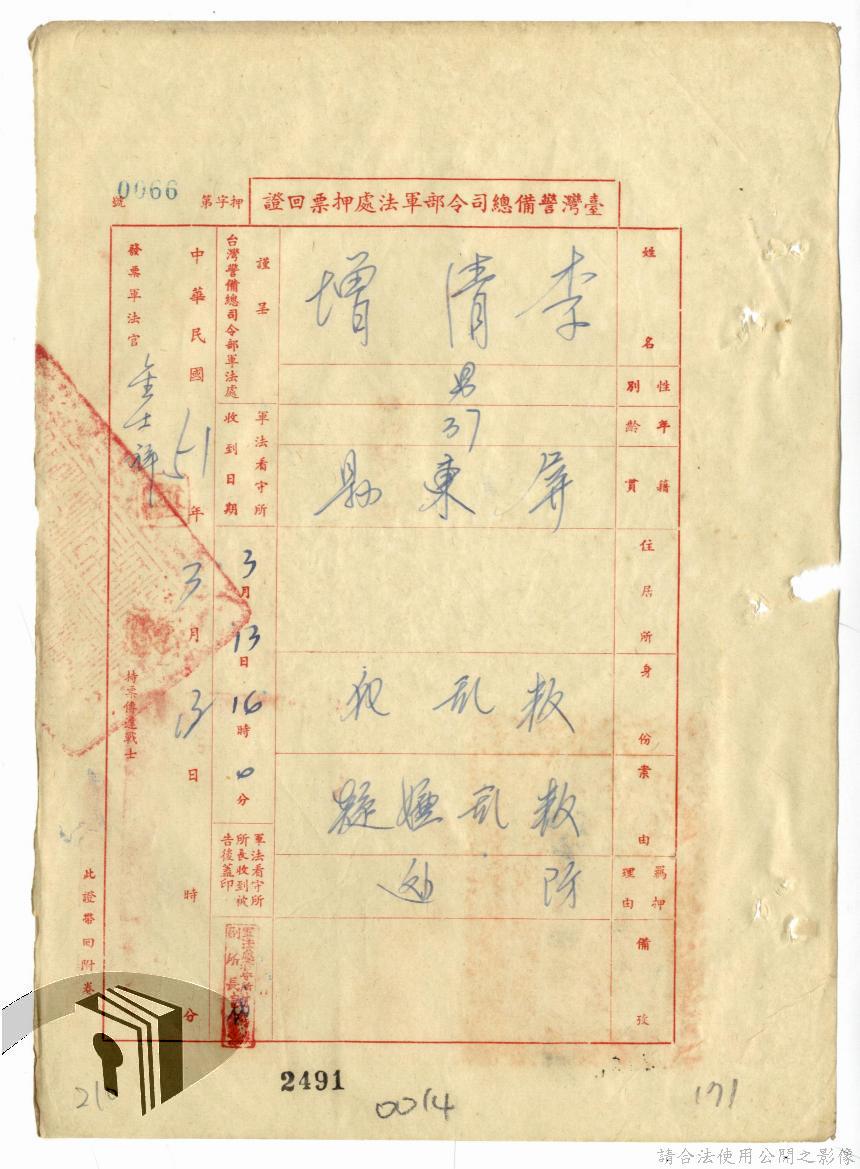 臺灣警備總司令部軍法處押票回證
押字第0066號
姓名 李清增
性別 男
年齡 37
籍貫 屏東縣
住居所
身份 叛亂犯
案由 叛亂嫌疑
羈押理由 防逃
備攷
謹呈
台灣警備總司令部軍法處
軍法看守所收到日期 3月13日16時0分
軍法看守所所長收到被告後蓋印
副所長
中華民國51年3月13日 時 分
發票軍法官
持票傳達戰士
此證帶回附卷
2491
0014
171
請合法使用公開之影像